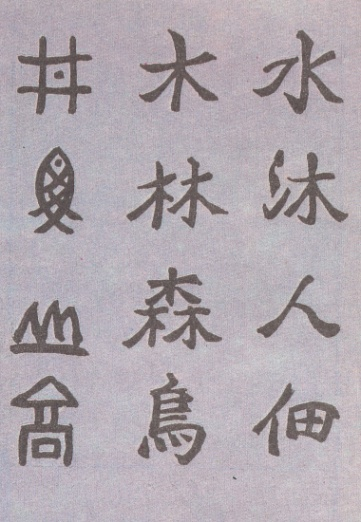 水沐人佃
木林森鳥
丼魚山高